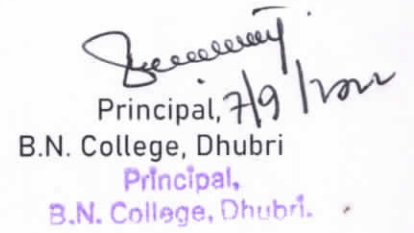 Principal, 7/9/2022
B.N. College, Dhubri
Principal,
B.N. College, Dhubri.